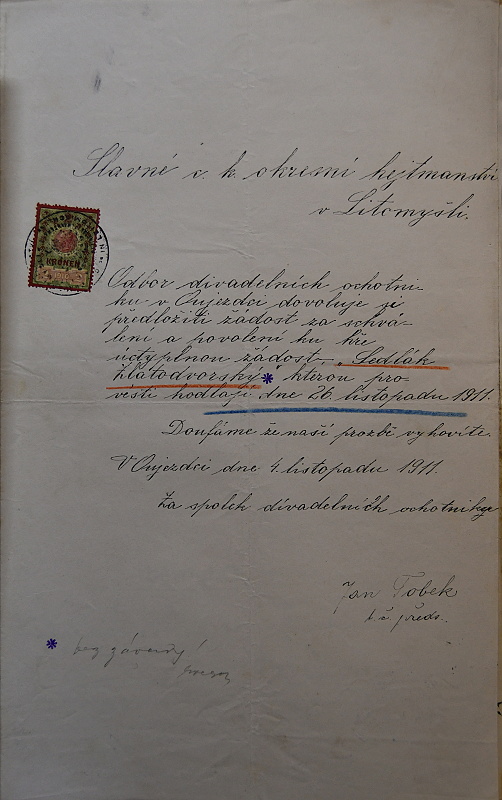 Slavné c. k. okresní hejtmanství
v Litomyšli.
KRONEN
Odbor divadelních ochotní-
ku v Oujezdci dovoluje si
předložiti žádost za schvá-
lení a povolení ku hře
úctyplnou žádost „Sedlák
Zlatodvorský" * kterou pro-
vésti hodlají dne 26. listopadu 1911.
Doufáme že naší prozbě vyhovíte.
V Oujezdci dne 4. listopadu 1911.
Za spolek divadelních ochotníku
Jan Tobek
t. č. předs.
* bez závady!